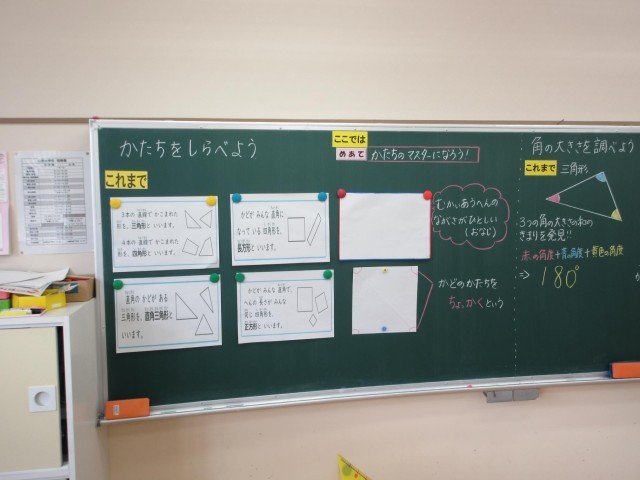 かたちをしらべよう
ここでは
めあて かたちのマスターになろう!
これまで
3本の 直線で かこまれた
形を、三角形と いいます。
4本の 直線で かこまれた
形を、四角形と いいます。
かどが みんな 直角に
なって いる 四角形を、
長方形と いいます。
むかいあうへんの
ながさがひとしい
(おなじ)
直角の かどが ある
三角形を、直角三角形と
いいます。
かどが みんな 直角で、
へんの 長さが みんな
同じ 四角形を、
正方形と いいます。
かどのかたちを
ちょっかくという
角の大きさを調べよう
これまで 三角形
3つの角の大きさの和の
きまりを発見!!
赤の角度+青の角度+黄色の角度
⇒ 180°